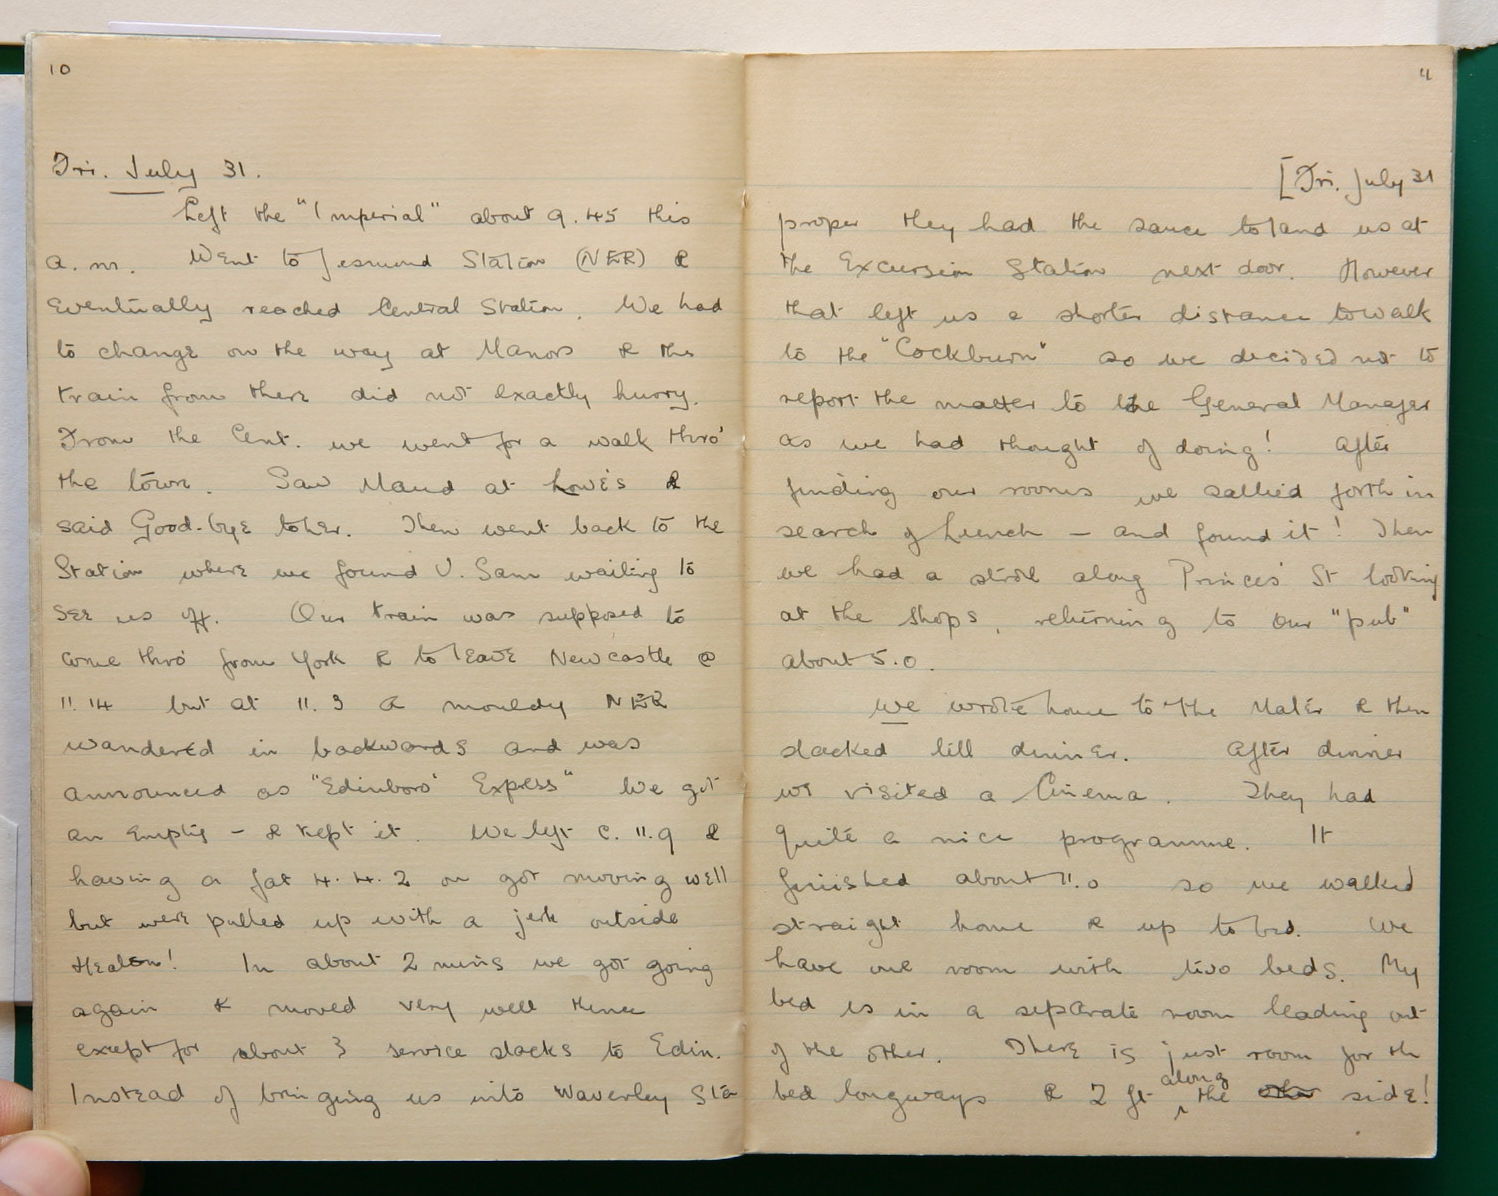 10
Fri. July 31.
Left the "Imperial" about 9.45 this
a.m. Went to Jesmond Station (NER) &
eventually reached Central Station. We had
to change on the way at Manors & the
train from there did not exactly hurry.
From the Cent. we went for a walk thro'
the town. Saw Maud at Lowe's &
said Good-bye to her. Then went back to the
Station where we found U. Sam waiting to
see us off. Our train was supposed to
come thro' from York & to leave Newcastle @
11.14 but at 11.3 a mouldy NER
wandered in backwards and was
announced as "Edinboro' Express" We got
an empty - & kept it. We left c. 11.9 &
having a fat 4.4.2 on got moving well
but were pulled up with a jerk outside
Heaton! In about 2 mins we got going
again & moved very well thence
except for about 3 service slacks to Edin.
Instead of bringing us into Waverley Sta
11
[Fri. July 31
proper they had the sauce to land us at
the Excursion Station next door. However
that left us a shorter distance to walk
to the "Cockburn" so we decided not to
report the matter to the General Manager
as we had thought of doing! After
finding our rooms we sallied forth in
search of Lunch - and found it! Then
we had a stroll along Princes' St looking
at the shops, returning to our "pub"
about 5.0.
We wrote home to the Mater & then
slacked till dinner. After dinner
we visited a Cinema. They had
quite a nice programme. It
finished about 11.0 so we walked
straight home & up to bed. We
have one room with two beds. My
bed is in a separate room leading out
of the other. There is just room for th
bed longways & 2 ft along the side!